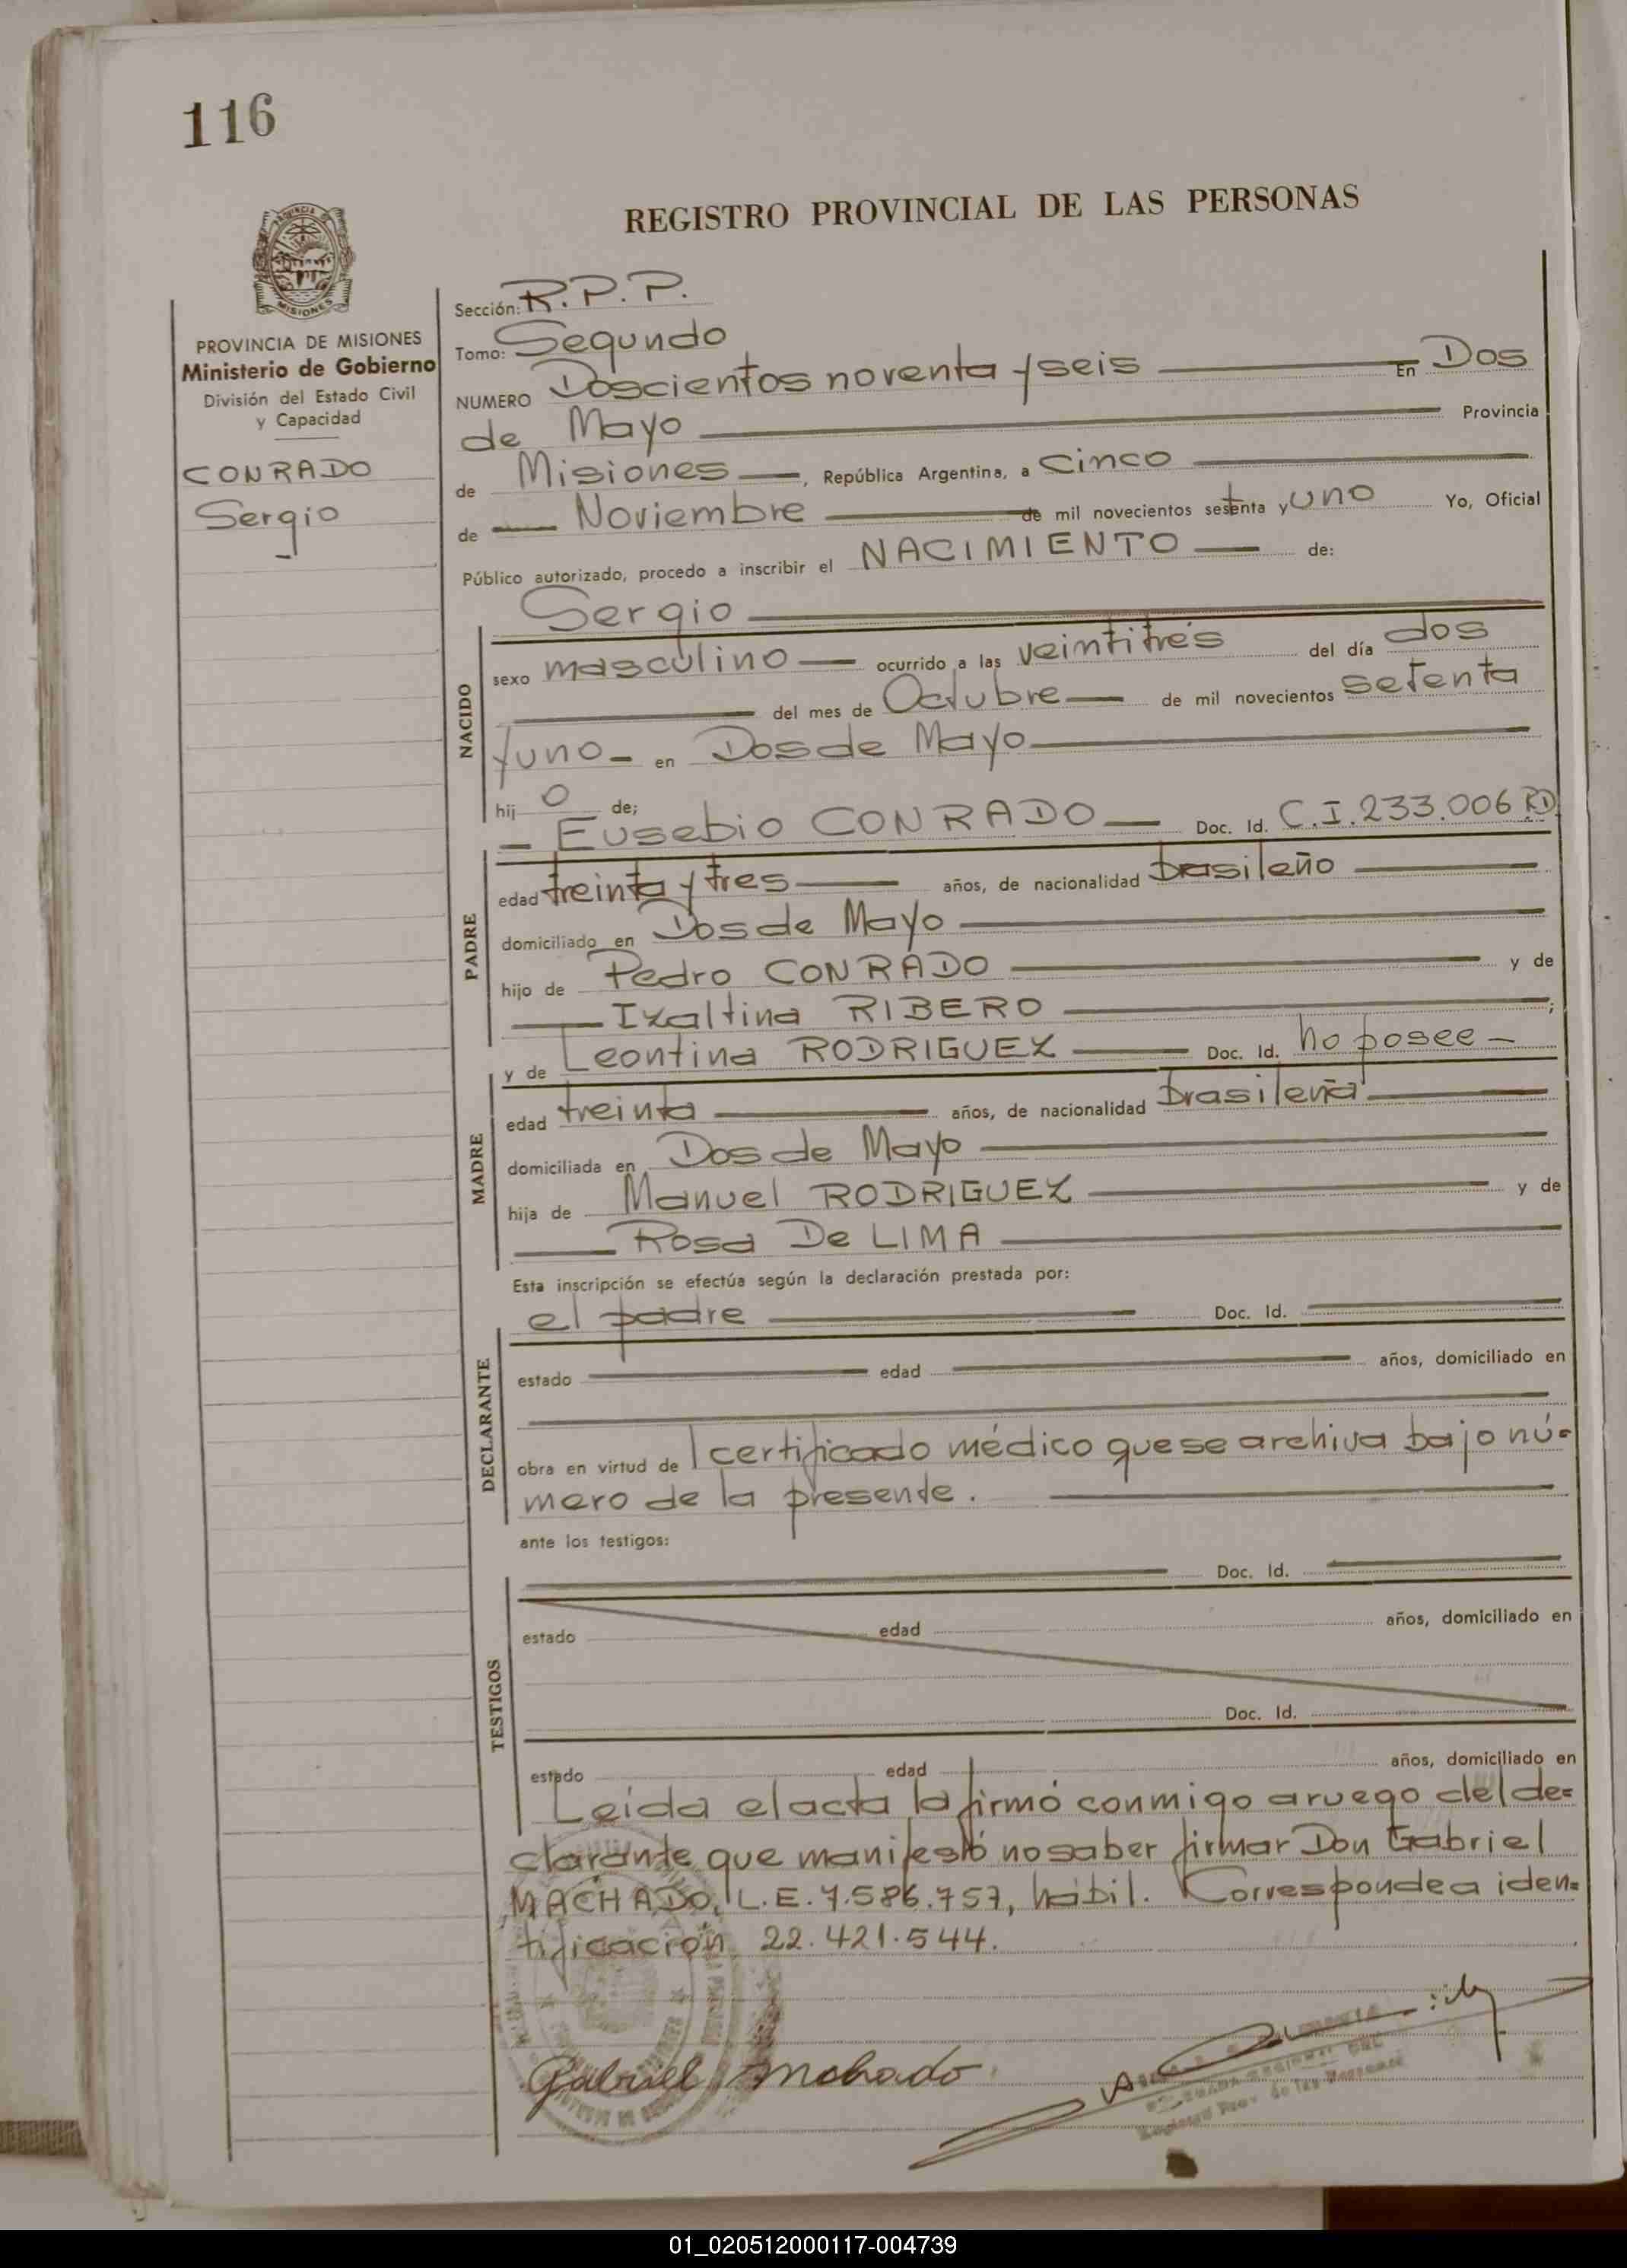 116
REGISTRO PROVINCIAL DE LAS PERSONAS
PROVINCIA DE MISIONES
Ministerio de Gobierno
División del Estado Civil
y Capacidad
CONRADO
Sergio
Sección: R.P.P.
Tomo: Segundo
NUMERO Doscientos noventa y seis En Dos
de Mayo Provincia
de Misiones, República Argentina, a cinco
de Noviembre de mil novecientos setenta y uno Yo, Oficial
Público autorizado, procedo a inscribir el NACIMIENTO de:
Sergio
NACIDO
sexo masculino ocurrido a las veintitrés del día dos
del mes de Octubre de mil novecientos setenta
y uno en Dos de Mayo
hij o de;
Eusebio CONRADO Doc. Id. C.I.233.006 RD
PADRE
edad treinta y tres años, de nacionalidad brasileño
domiciliado en Dos de Mayo
hijo de Pedro CONRADO y de
Izaltina RIBERO ;
y de Leontina RODRIGUEZ Doc. Id. no posee
MADRE
edad treinta años, de nacionalidad brasileña
domiciliada en Dos de Mayo
hija de Manuel RODRIGUEZ y de
Rosa De LIMA
Esta inscripción se efectúa según la declaración prestada por:
el padre Doc. Id.
DECLARANTE
estado edad años, domiciliado en
obra en virtud de l certificado médico que se archiva bajo nú=
mero de la presente.
ante los testigos:
Doc. Id.
TESTIGOS
estado edad años, domiciliado en
Doc. Id.
estado edad años, domiciliado en
Leída el acta la firmó conmigo a ruego del de=
clarante que manifestó no saber firmar Don Gabriel
MACHADO, L.E. 7.586.757, hábil. Corresponde a iden=
tificación 22.421.544.
Gabriel Mchado
01_020512000117-004739